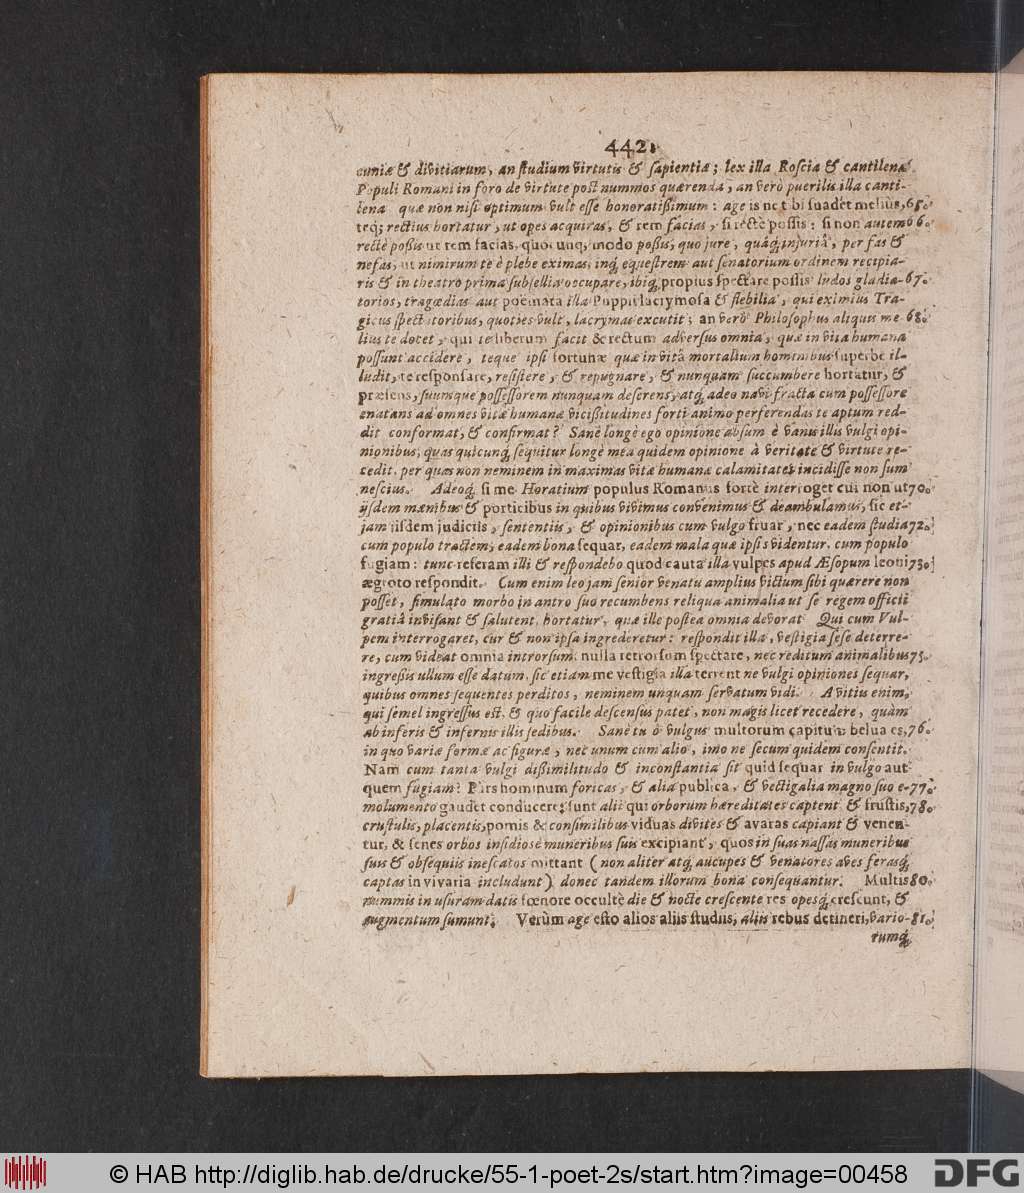 442.
cuniæ & divitiarum, an studium virtutis & sapientiæ; lex illa Roscia & cantilena
Populi Romani in foro de virtute post nummos quærenda, an verò puerilis illa canti-
lena quæ non nisi optimum vult esse honoratißimum: age is ne tibi suadet melius, 65.
teq; rectius hortatur, ut opes acquiras, & rem facias, si rectè possis: si non autem 66.
rectè possis ut rem facias, quocunq; modo poßis, quo jure, quáq; injuriâ, per fas &
nefas, ut nimirum te è plebe eximas, inq; equestrem aut senatorium ordinem recipia-
ris & in theatro prima subsellia occupare, ibiq; propius spectare possis ludos gladia- 67.
torios, tragœdias aut poëmata illa Puppii lacrymosa & flebilia, qui eximius Tra-
gicus spectatoribus, quoties vult, lacrymas excutit; an verò Philosophus aliquis me- 68.
lius te docet, qui te liberum facit & rectum adversus omnia, quæ in vita humana
possunt accidere, teque ipsi fortunæ quæ in vitâ mortalium hominibus superbè il-
ludit, te responsare, resistere, & repugnare, & nunquam succumbere hortatur, &
præsens, suumque possessorem nunquam deserens, atq; adeo navi fracta cum possessore
enatans ad omnes vitæ humanæ vicißitudines forti animo perferendas te aptum red-
dit conformat, & confirmat? Sanè longè ego opinione absum è vanis illis vulgi opi-
nionibus, quas quicunq; sequitur longè mea quidem opinione à veritate & virtute re-
cedit, per quas non neminem in maximas vitæ humanæ calamitates incidisse non sum
nescius. Adeoq; si me Horatium populus Romanus fortè interroget cui non ut 70.
ijsdem mœnibus & porticibus in quibus vivimus convenimus & deambulamus, sic et-
jam iisdem judiciis, sententiis, & opinionibus cum vulgo fruar, nec eadem studia 72.
cum populo tractem, eadem bona sequar, eadem mala quæ ipsis videntur, cum populo
fugiam: tunc referam illi & respondebo quod cauta illa vulpes apud Æsopum leoni 73.
ægroto respondit. Cum enim leo jam senior venatu amplius victum sibi quærere non
posset, simulato morbo in antro suo recumbens reliqua animalia ut se regem officii
gratiâ invisant & salutent, hortatur, quæ ille postea omnia devorat Qui cum Vul-
pem interrogaret, cur & non ipsa ingrederetur: respondit illa, vestigia sese deterre-
re, cum videat omnia introrsum nulla retrorsum spectare, nec reditum animalibus 75.
ingreßis ullum esse datum, sic etiam me vestigia illa terrent ne vulgi opiniones sequar,
quibus omnes sequentes perditos, neminem unquam servatum vidi. A vitiis enim,
qui semel ingressus est, & quo facile descensus patet, non magis licet recedere, quàm
ab inferis & infernis illis sedibus. Sanè tu ô vulgus multorum capitum belua es, 76.
in quo variæ formæ ac figuræ, nec unum cum alio, imo ne secum quidem consentit.
Nam cum tanta vulgi dißimilitudo & inconstantia sit quid sequar in vulgo aut
quem fugiam? Pars hominum foricas, & alia publica, & vectigalia magno suo e- 77.
molumento gaudet conducere; sunt alii qui orborum hæreditates captent & frustis, 78.
crustulis, placentis, pomis & consimilibus viduas divites & avaras capiant & venen-
tur, & senes orbos insidiosè muneribus suis excipiant, quos in suas nassas muneribus
suis & obsequiis inescatos mittant (non aliter atq; aucupes & venatores aves ferasq;
captas in vivaria includunt) donec tandem illorum bona consequantur. Multis 80.
nummis in usuram datis fœnore occultè die & nocte crescente res opesq; crescunt, &
augmentum sumunt. Verùm age esto alios aliis studiis, aliis rebus detineri, vario- 81.
rumq;
© HAB http://diglib.hab.de/drucke/55-1-poet-2s/start.htm?image=00458
DFG